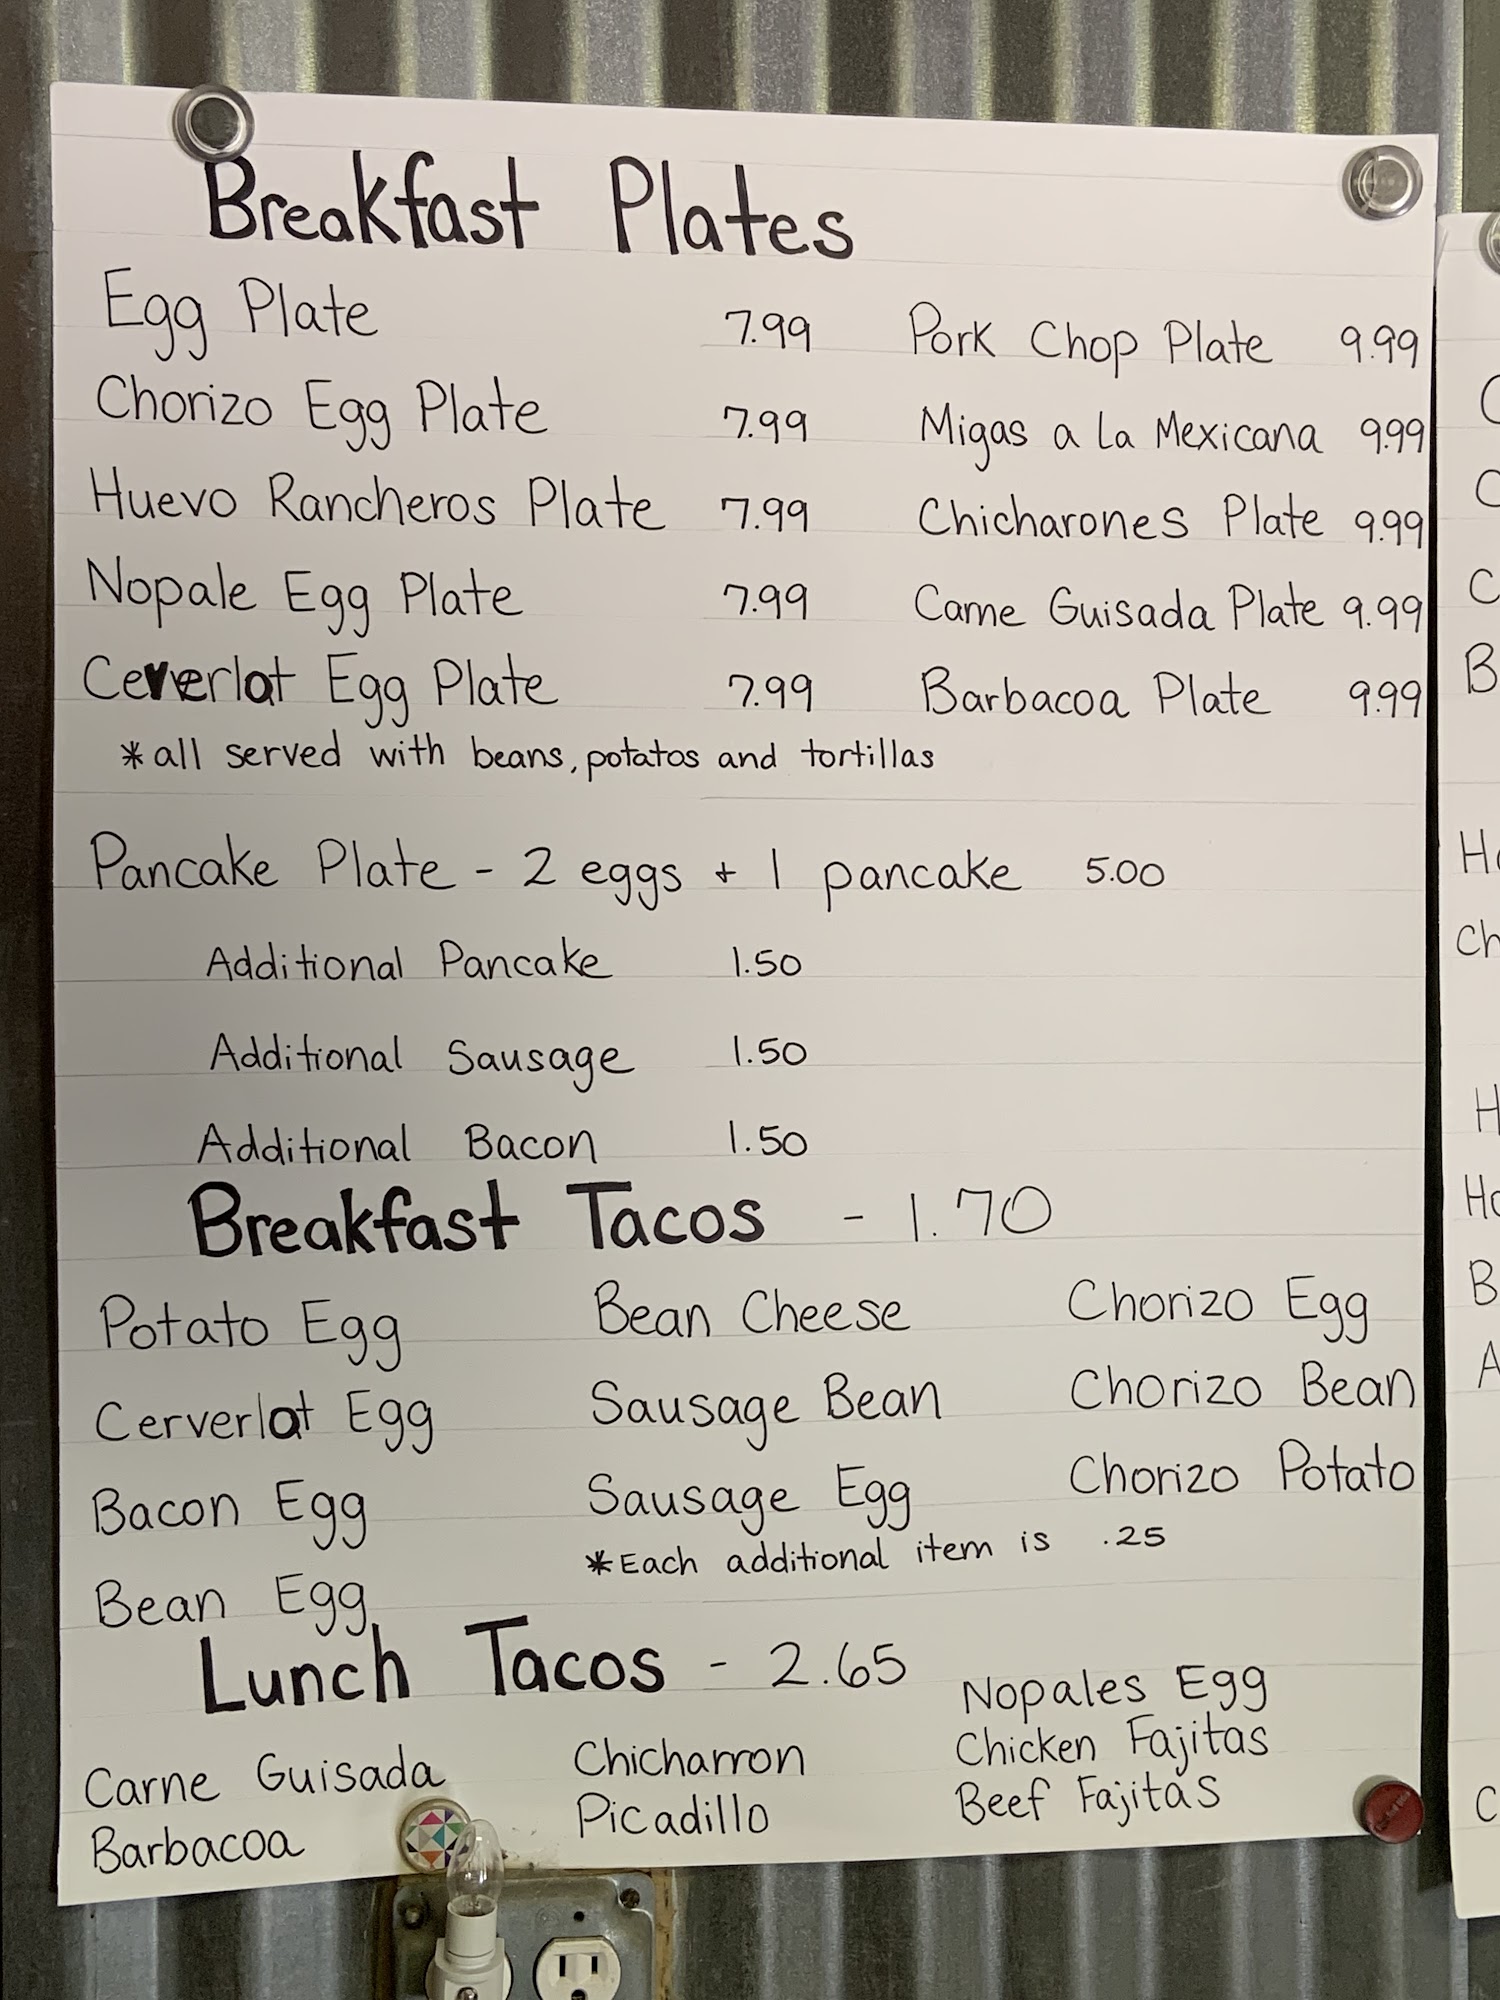 Breakfast Plates
Egg Plate 7.99 Pork Chop Plate 9.99
Chorizo Egg Plate 7.99 Migas a la Mexicana 9.99
Huevo Rancheros Plate 7.99 Chicharones Plate 9.99
Nopale Egg Plate 7.99 Carne Guisada Plate 9.99
Ceverlat Egg Plate 7.99 Barbacoa Plate 9.99
*all served with beans, potatos and tortillas
Pancake Plate - 2 eggs + 1 pancake 5.00
Additional Pancake 1.50
Additional Sausage 1.50
Additional Bacon 1.50
Breakfast Tacos - 1.70
Potato Egg Bean Cheese Chorizo Egg
Cerverlat Egg Sausage Bean Chorizo Bean
Bacon Egg Sausage Egg Chorizo Potato
*Each additional item is .25
Bean Egg
Lunch Tacos - 2.65
Nopales Egg
Carne Guisada Chicharron Chicken Fajitas
Barbacoa Picadillo Beef Fajitas